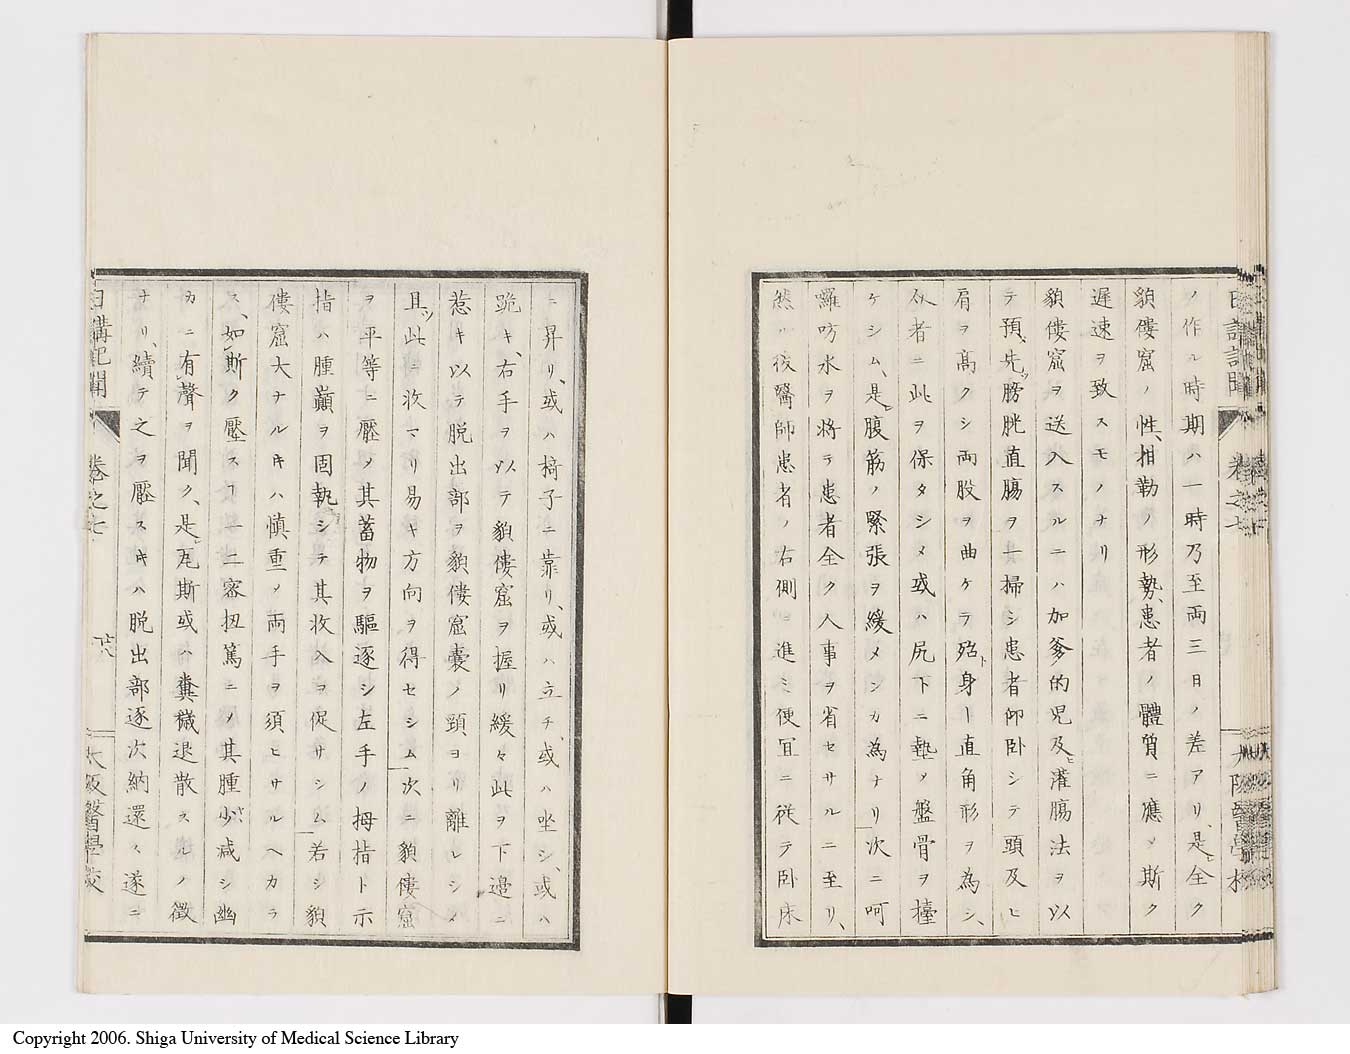 日講記聞 卷之七 大阪醫學校
ノ作ル時期ハ一時乃至両三日ノ差アリ、是全ク
貌僂窟ノ性、相勒ノ形勢、患者ノ體質ニ應メ斯ク
遲速ヲ致スモノナリ
貌僂窟ヲ送入スルニハ加爹的児及ヒ灌腸法ヲ以
テ預先ッ膀胱直腸ヲ一掃シ患者仰卧シテ頭及ヒ
肩ヲ高クシ両股ヲ曲ケテ殆ト身ト直角形ヲ為シ、
介者ニ此ヲ保タシメ或ハ尻下ニ墊メ盤骨ヲ擡
ケシム、是レ腹筋ノ緊張ヲ緩メンカ為ナリ次ニ呵
囉吩水ヲ将テ患者全ク人事ヲ省セサルニ至リ、
然ル後醫師患者ノ右側ニ進ミ便冝ニ従テ卧床
ニ昇リ、或ハ椅子ニ靠リ、或ハ立チ、或ハ坐シ、或ハ
跪キ、右手ヲ以テ貌僂窟ヲ握リ緩々此ヲ下邉ニ
惹キ以テ脱出部ヲ貌僂窟嚢ノ頸ヨリ離レシメ
且ツ此ニ収マリ易キ方向ヲ得セシム次ニ貌僂窟
ヲ平等ニ壓メ其蓄物ヲ驅逐シ左手ノ拇指ト示
指ハ腫巔ヲ固執シテ其收入ヲ促サシム若シ貌
僂窟大ナルキハ慎重メ両手ヲ須ヒサルヘカラ
ス、如斯ク壓スヿ一二密扭篤ニメ其腫少シク减シ幽
カニ有聲ヲ聞ク、是レ瓦斯或ハ糞穢退散スルノ徴
ナリ、續テ之ヲ壓スキハ脱出部逐次納還メ、遂ニ
日講記聞 卷之七 廿八 大阪醫學校
Copyright 2006. Shiga University of Medical Science Library